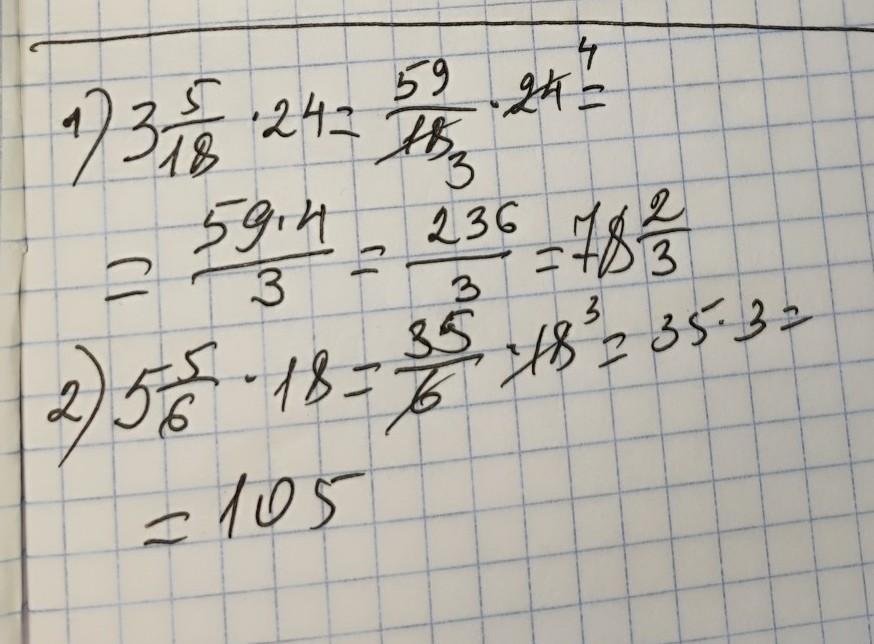 1) 3 5/18 · 24 = 59/18 3 · 24 4 =
= 59·4/3 = 236/3 = 78 2/3
2) 5 5/6 · 18 = 35/6 · 18 3 = 35·3 =
= 105